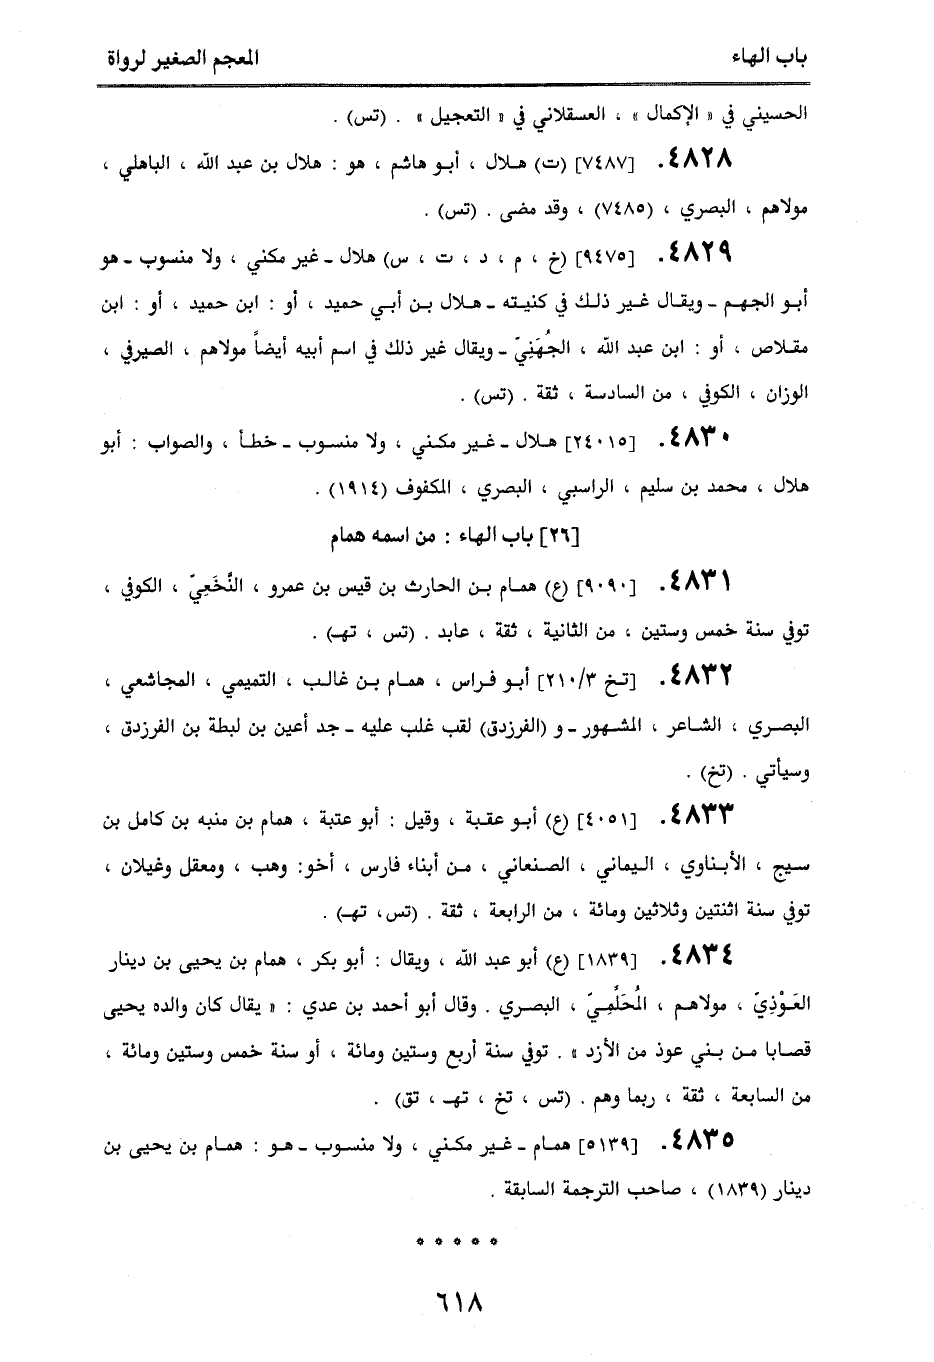 باب الهاء المعجم الصغير لرواة
الحسيني في « الإكمال » ، العسقلاني في « التعجيل » . (تس) .
٤٨٢٨. [٧٤٨٧] (ت) هلال ، أبو هاشم ، هو : هلال بن عبد الله ، الباهلي ،
مولاهم ، البصري ، (٧٤٨٥) ، وقد مضى . (تس) .
٤٨٢٩. [٩٤٧٥] (خ ، م ، د ، ت ، س) هلال ـ غير مكني ، ولا منسوب ـ هو
أبو الجهم ـ ويقال غير ذلك في كنيته ـ هلال بن أبي حميد ، أو : ابن حميد ، أو : ابن
مقلاص ، أو : ابن عبد الله ، الجُهَنِيّ ـ ويقال غير ذلك في اسم أبيه أيضاً مولاهم ، الصيرفي ،
الوزان ، الكوفي ، من السادسة ، ثقة . (تس) .
٤٨٣٠. [٢٤٠١٥] هلال ـ غير مكني ، ولا منسوب ـ خطأ ، والصواب : أبو
هلال ، محمد بن سليم ، الراسبي ، البصري ، المكفوف (١٩١٤) .
[٢٦] باب الهاء : من اسمه همام
٤٨٣١. [٩٠٩٠] (ع) همام بن الحارث بن قيس بن عمرو ، النَّخَعِيّ ، الكوفي ،
توفي سنة خمس وستين ، من الثانية ، ثقة ، عابد . (تس ، تهـ) .
٤٨٣٢. [تخ ٢١٠/٣] أبو فراس ، همام بن غالب ، التميمي ، المجاشعي ،
البصري ، الشاعر ، المشهور ـ و (الفرزدق) لقب غلب عليه ـ جد أعين بن لبطة بن الفرزدق ،
وسيأتي . (تخ) .
٤٨٣٣. [٤٠٥١] (ع) أبو عقبة ، وقيل : أبو عتبة ، همام بن منبه بن كامل بن
سيج ، الأبناوي ، اليماني ، الصنعاني ، من أبناء فارس ، أخو: وهب ، ومعقل وغيلان ،
توفي سنة اثنتين وثلاثين ومائة ، من الرابعة ، ثقة . (تس، تهـ) .
٤٨٣٤. [١٨٣٩] (ع) أبو عبد الله ، ويقال : أبو بكر ، همام بن يحيى بن دينار
العَوْذِيّ ، مولاهم ، المُحَلَّمِيّ ، البصري . وقال أبو أحمد بن عدي : « يقال كان والده يحيى
قصابا من بني عوذ من الأزد » . توفي سنة أربع وستين ومائة ، أو سنة خمس وستين ومائة ،
من السابعة ، ثقة ، ربما وهم . (تس ، تخ ، تهـ ، تق) .
٤٨٣٥. [٥١٣٩] همام ـ غير مكني ، ولا منسوب ـ هو : همام بن يحيى بن
دينار (١٨٣٩) ، صاحب الترجمة السابقة .
* * * * *
٦١٨